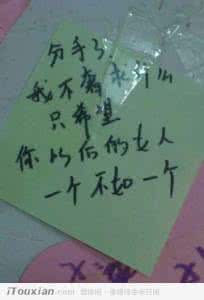 分手了.
我不奢求什么
只希望
你以后的女人
一个不如一个
iTouxian.com